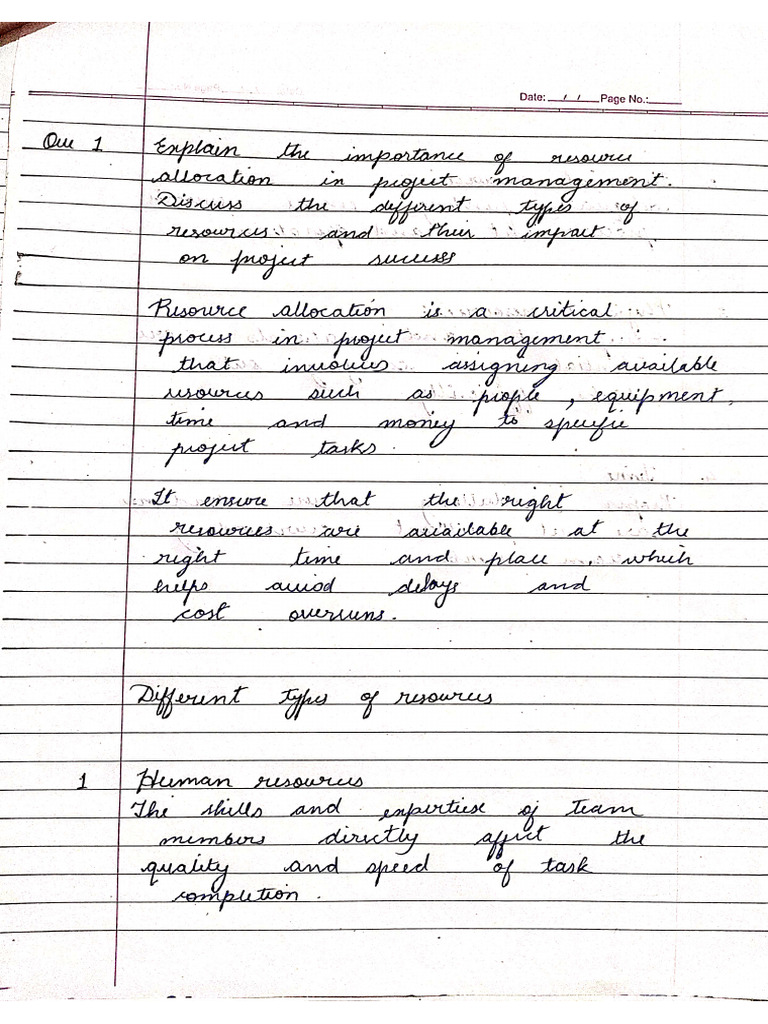 Date: __/__/__ Page No.:____
Que 1 Explain the importance of resource
allocation in project management.
Discuss the different types of
resources and their impact
on project success
Resource allocation is a critical
process in project management
that involves assigning available
resources such as people, equipment,
time and money to specific
project tasks.
It ensure that the right
resources are available at the
right time and place, which
helps aviod delays and
cost overruns.
Different types of resources
1 Human resources
The skills and expertise of team
members directly affect the
quality and speed of task
completion.